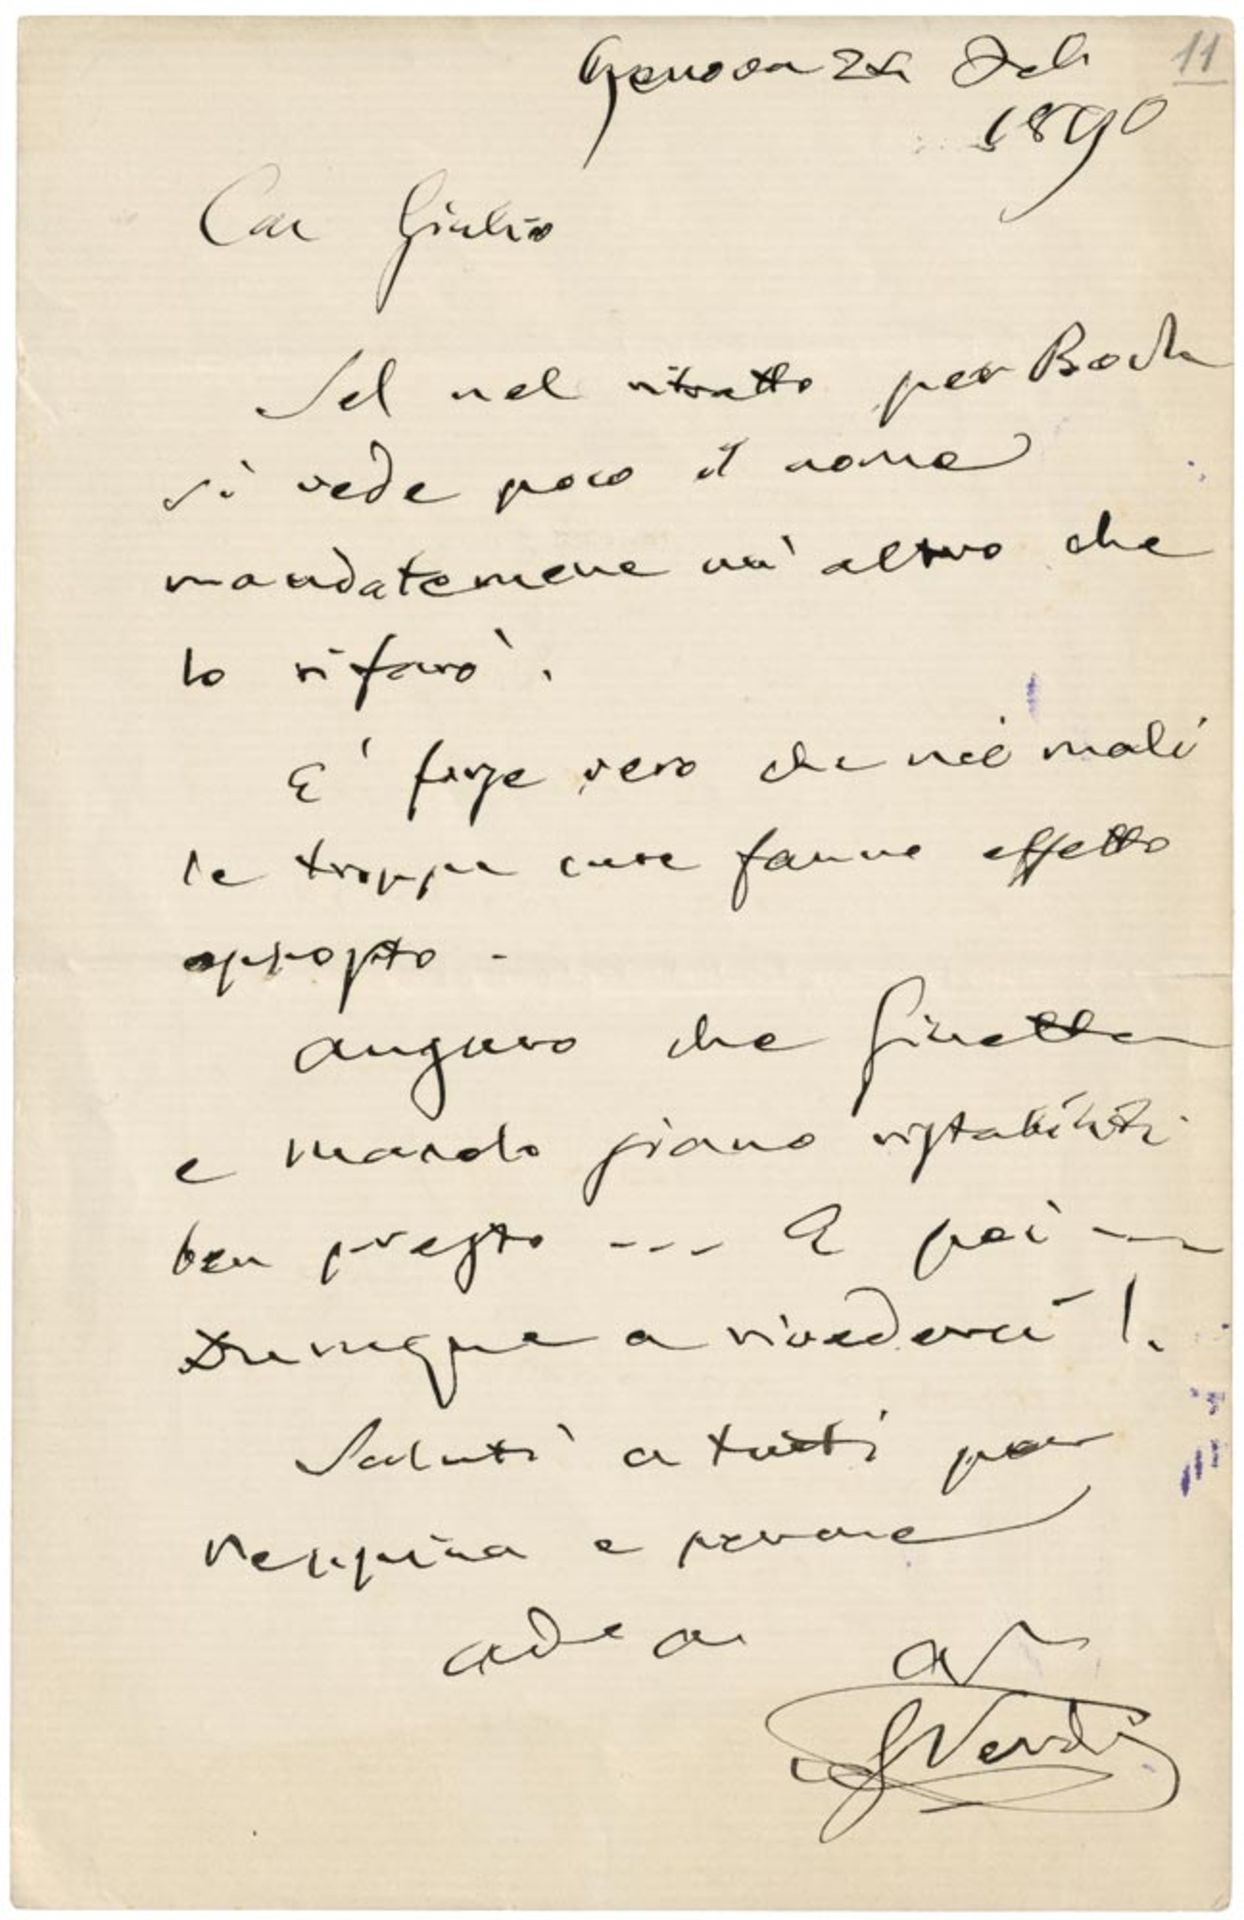 11
Genova 24 Feb
1890
Car Giulio
Sel nel ritratto per Bock
si vede poco il nome
mandatemene un' altro che
lo rifarò.
E' forse vero che nei mali
le troppe cure fanno effetto
opposto -
Auguro che Ginetta
e Manolo siano ristabiliti
ben presto --- E poi --
Dunque a rivederci!.
Saluti a tutti per
Peppina e per me
add
G Verdi